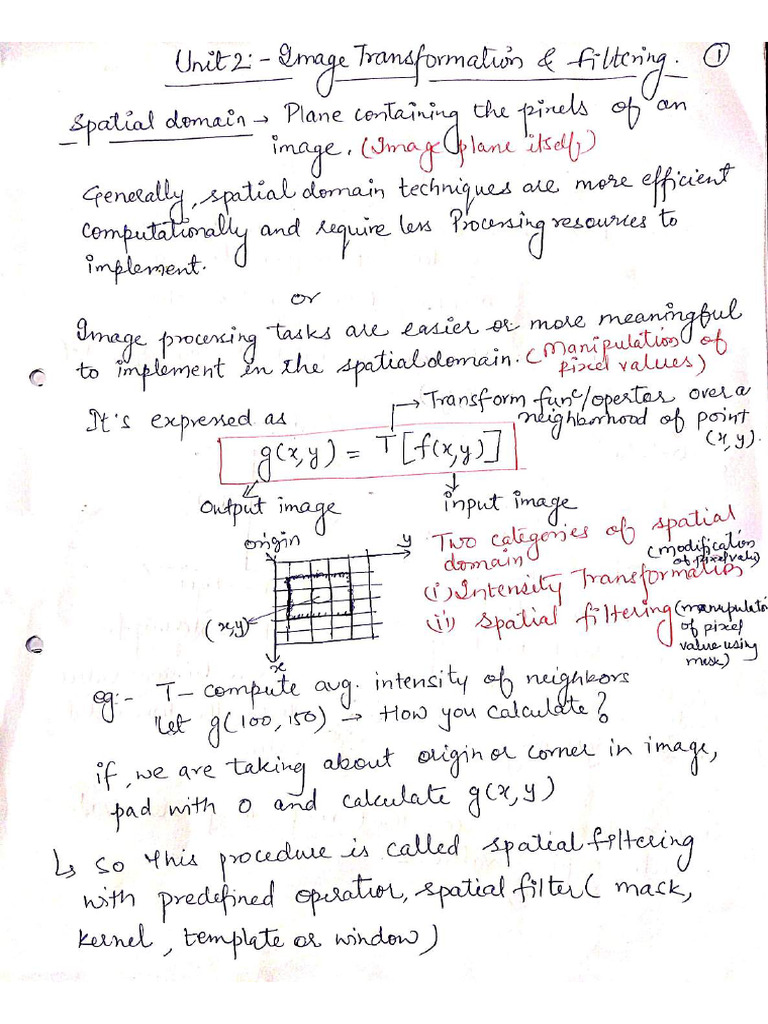 Unit 2:- Image Transformation & filtering. ①
Spatial domain → Plane containing the pixels of an
image. (Imag plane itself)
Generally, spatial domain techniques are more efficient
computationally and require less Processing resources to
implement.
or
Image processing tasks are easier or more meaningful
to implement in the spatial domain. (Manipulation of
pixel values)
It's expressed as
→ Transform funⁿ/opertor over a
neighborhood of point
(x,y).
g(x,y) = T[f(x,y)]
Output image
input image
origin
y
(x,y)
x
Two categories of spatial
domain
(modification
of pixel valu)
(i) Intensity Transformation
(ii) Spatial filtering (manipulatio
of pixel
value using
mask)
eg:- T - compute avg. intensity of neighbors
Let g(100,150) → How you calculate?
if, we are taking about origin or corner in image,
pad with 0 and calculate g(x,y)
↳ So this procedure is called spatial filtering
with predefined operation, spatial filter ( mask,
kernel, template or window)